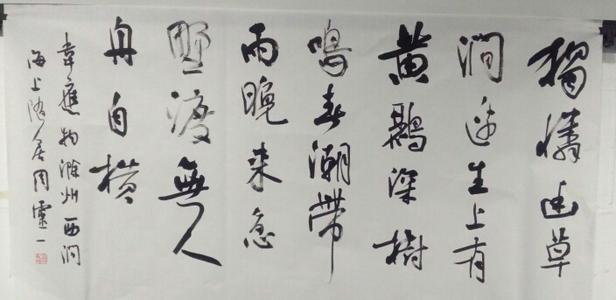 獨憐幽草
澗邊生上有
黃鸝深樹
鳴春潮帶
雨晚來急
野渡無人
舟自橫
韋應物滁州西澗
海上隱居周靈一